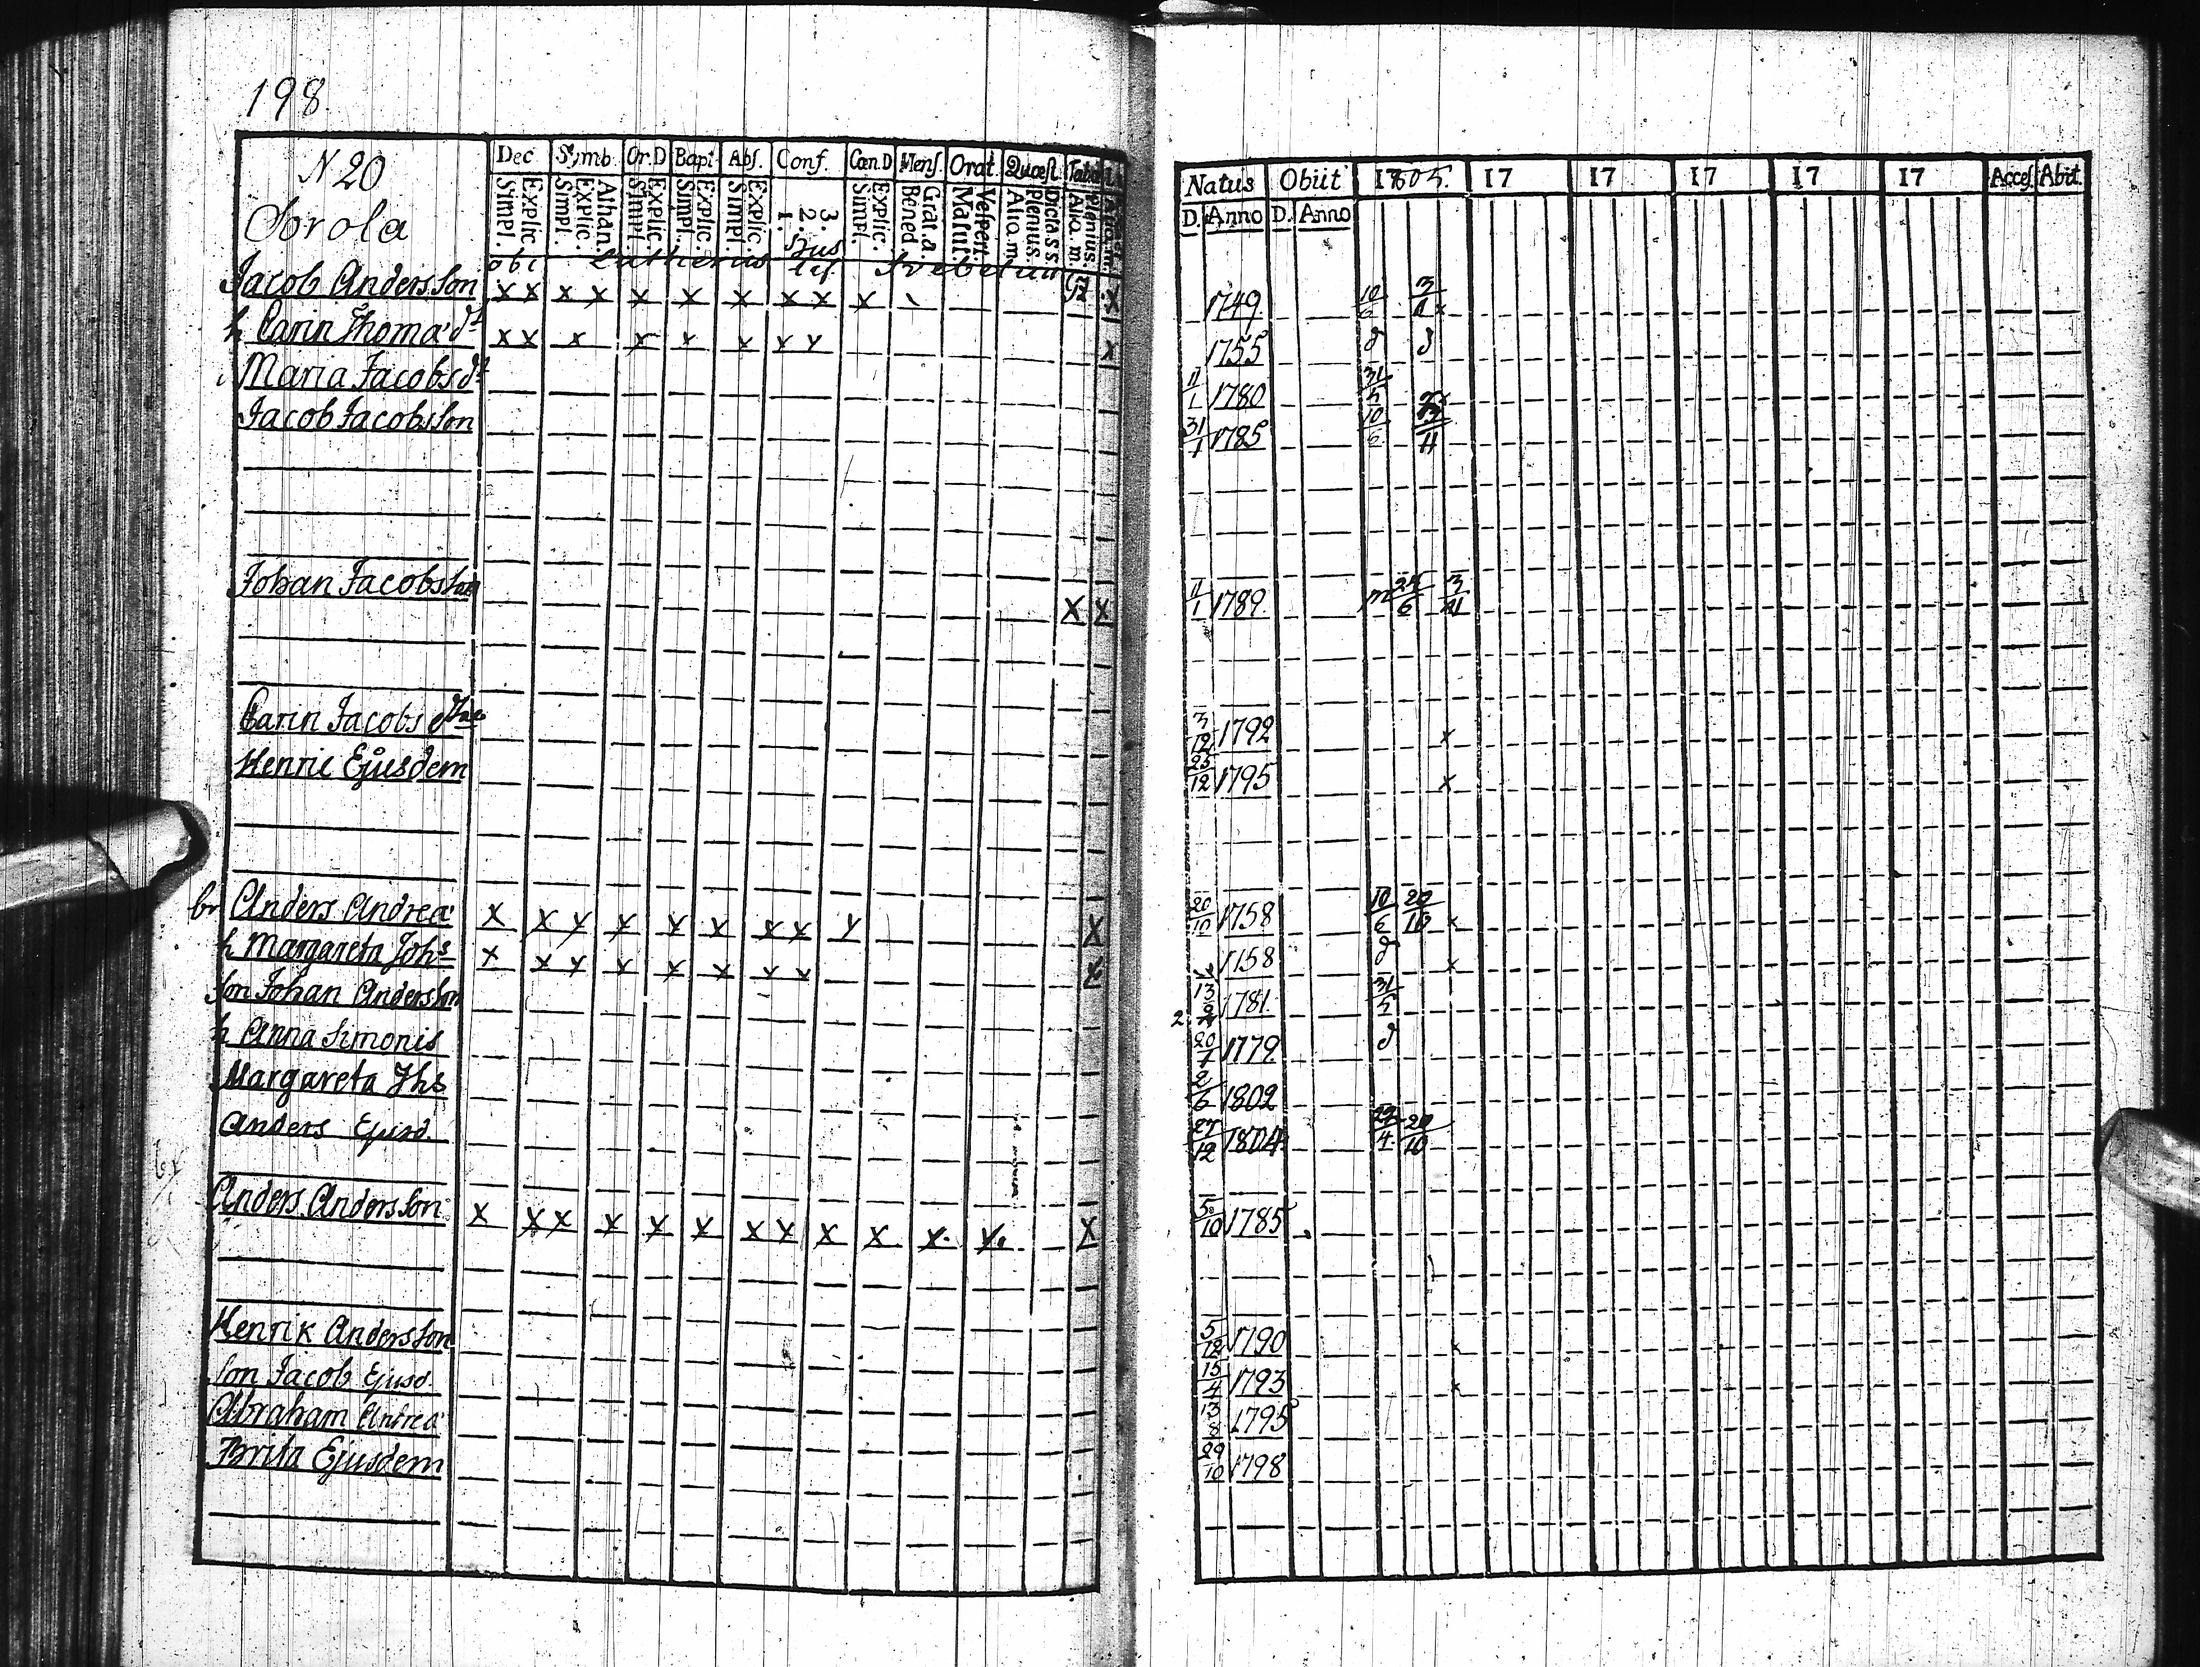 198.
N 20
Sorola
Dec. Symb. Or.D Bapt. Abs. Conf. Cœn.D Mens. Orat. Quæst.
Simpl. Explic. Simpl. Explic. Athan. Simpl. Explic. Simpl. Explic. Simpl. Explic. 1. 2. 3. Simpl. Explic. Bened. Grat.a. Matut. Vespert. Alio.m. Plenius. Dicta s.s. Alia.m. Plenius.
Natus Obiit 1805. 17 17 17 17 17 Acces. Abit.
D. Anno D. Anno
Jacob Andersson x x x x x x x x x x x 1749. 10/6
h Carin Thoma dt x x x x x x x x x 1755
Maria Jacobs dt 11/1 1780 31/5
Jacob Jacobsson 31/1 1785 10/6
Johan Jacobsson x x 11/1 1789.
Carin Jacobs 3/12 1792 x
Henric Ejusdem 25/12 1795 x
br Anders Andreæ x x x x x x x x x x 20/10 1758 10/6 20/10 x
h Margareta Johs x x x x x x x x x 1758 x
son Johan Andersson 13 1781. 31/5
h Anna Simonis 20/1 1779
Margareta Jhs 2/6 1802
Anders Ejusd. 27/12 1804. 20/10
Anders Andersson x x x x x x x x x x x. x. x 5/10 1785
Henrik Andersson 5/12 1790 x
son Jacob Ejusd. 15/4 1793 x
Abraham Andreæ 13/8 1795
Brita Ejusdem 29/10 1798